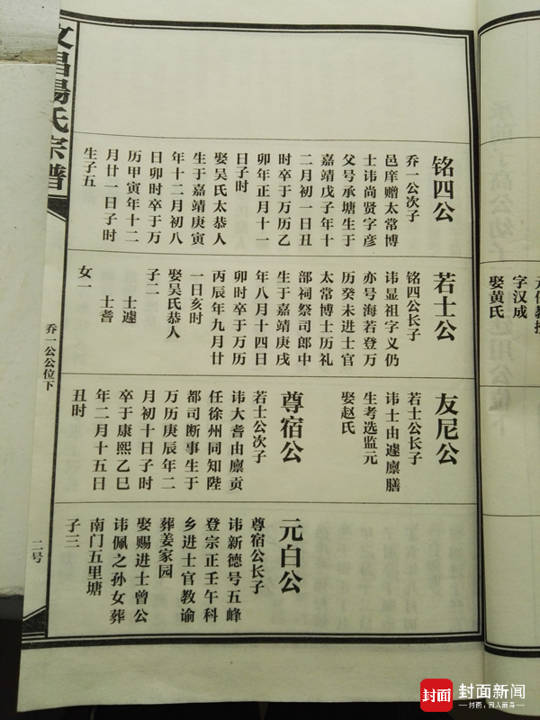 文昌湯氏宗谱
乔一公公位下
二号
铭四公
乔一公次子
邑庠赠太常博
士讳尚贤字彦
父号承塘生于
嘉靖戊子年十
二月初一日丑
时卒于万历乙
卯年正月十一
日子时
娶吴氏太恭人
生于嘉靖庚寅
年十二月初八
日卯时卒于万
历甲寅年十二
月廿一日子时
生子五
若士公
铭四公长子
讳显祖字义仍
亦号海若登万
历癸未进士官
太常博士历礼
部祠祭司郎中
生于嘉靖庚戌
年八月十四日
卯时卒于万历
丙辰年九月廿
一日亥时
娶吴氏恭人
子二
士遽
士耆
女一
友尼公
若士公长子
讳士由遽廪膳
生考选监元
娶赵氏
尊宿公
若士公次子
讳大耆由廪贡
任徐州同知陞
都司断事生于
万历庚辰年二
月初十日子时
卒于康熙乙巳
年二月十五日
丑时
元白公
尊宿公长子
讳新德号五峰
登宗正壬午科
乡进士官教谕
葬姜家园
娶赐进士曾公
讳佩之孙女葬
南门五里塘
子三
字汉成
娶黄氏
封面
封面新闻
封面，因人而异